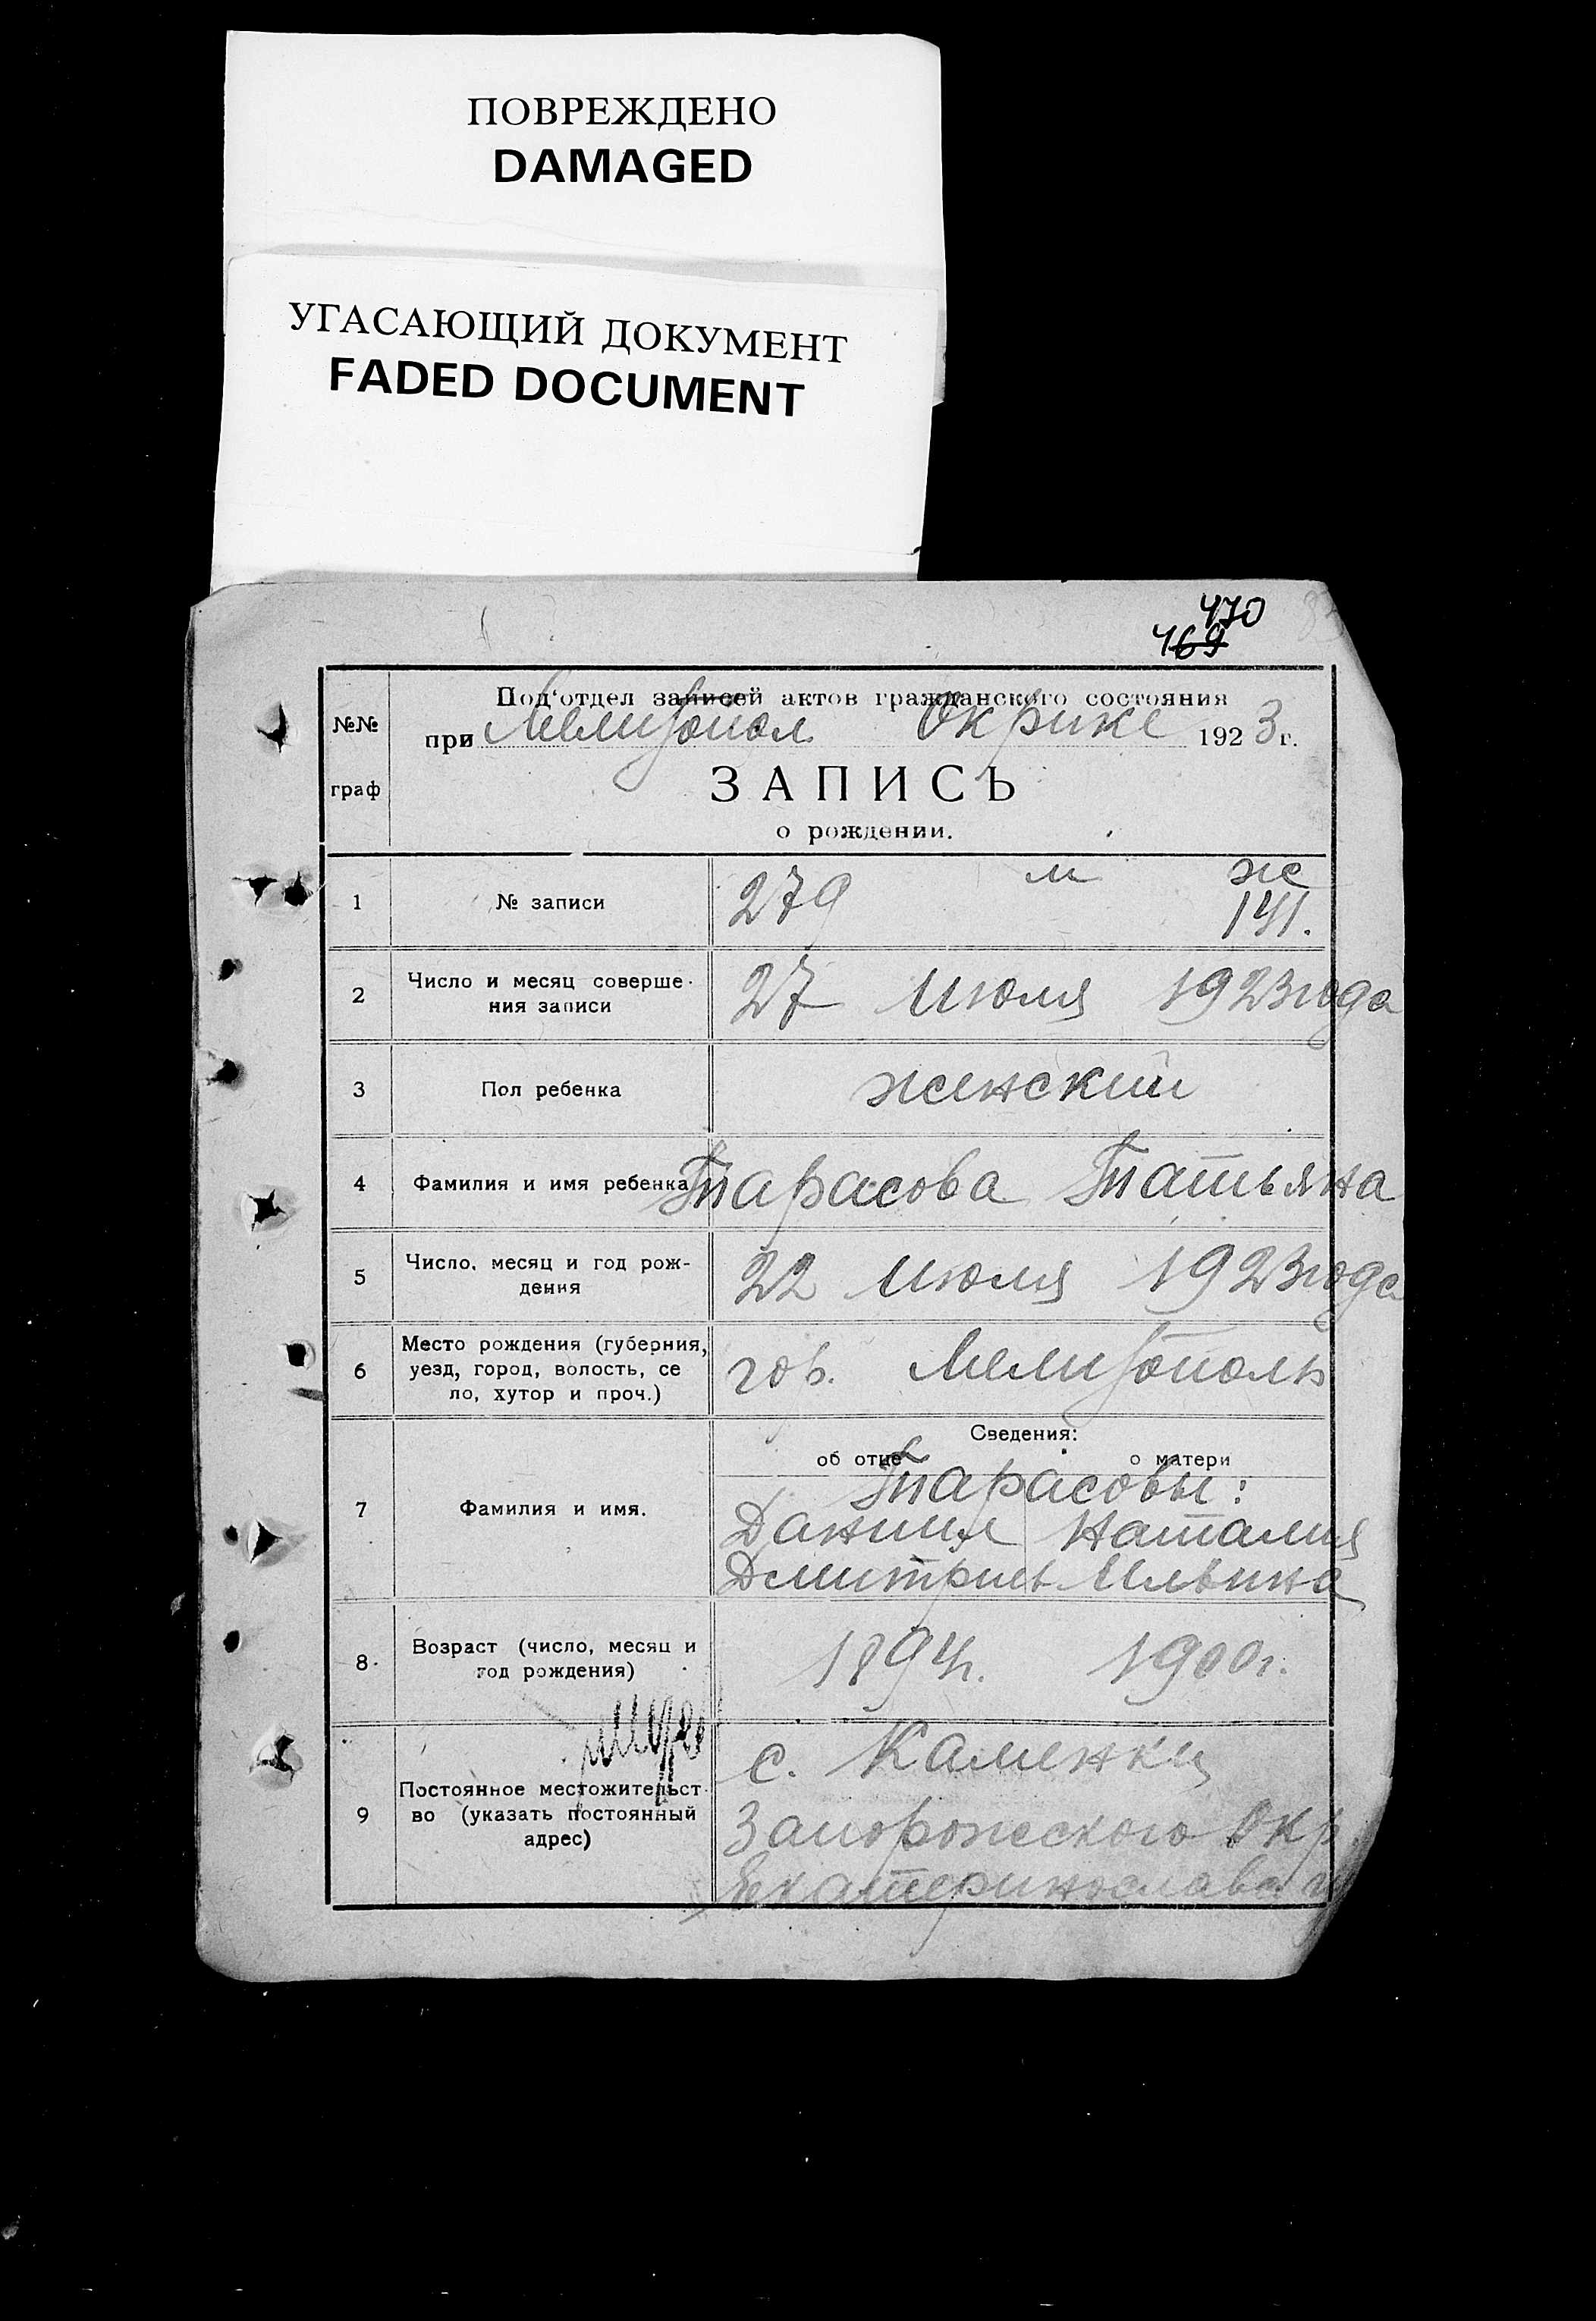 ПОВРЕЖДЕНО
DAMAGED
УГАСАЮЩИЙ ДОКУМЕНТ
FADED DOCUMENT
470
469
№№
граф
Под'отдел записей актов гражданского состояния
при Мелитопол Окрике 1923 г.
ЗАПИСЬ
о рождении.
1 № записи 279 м ж
141.
2 Число и месяц соверше-
ния записи
27 Июля 1923 года
3 Пол ребенка женский
4 Фамилия и имя ребенка Тарасова Татьяна
5 Число, месяц и год рож-
дения
22 Июля 1923 года
6 Место рождения (губерния,
уезд, город, волость, се
ло, хутор и проч.)
гор. Мелитополь
Сведения:
об отце о матери
7 Фамилия и имя.
Тарасовы:
Даниил Наталия
Дмитриев Ильина
8 Возраст (число, месяц и
год рождения)
1894 г. 1900 г.
9 Постоянное местожительст
во (указать постоянный
адрес)
с. Каменки
Запорожского Окр.
Екатеринослав